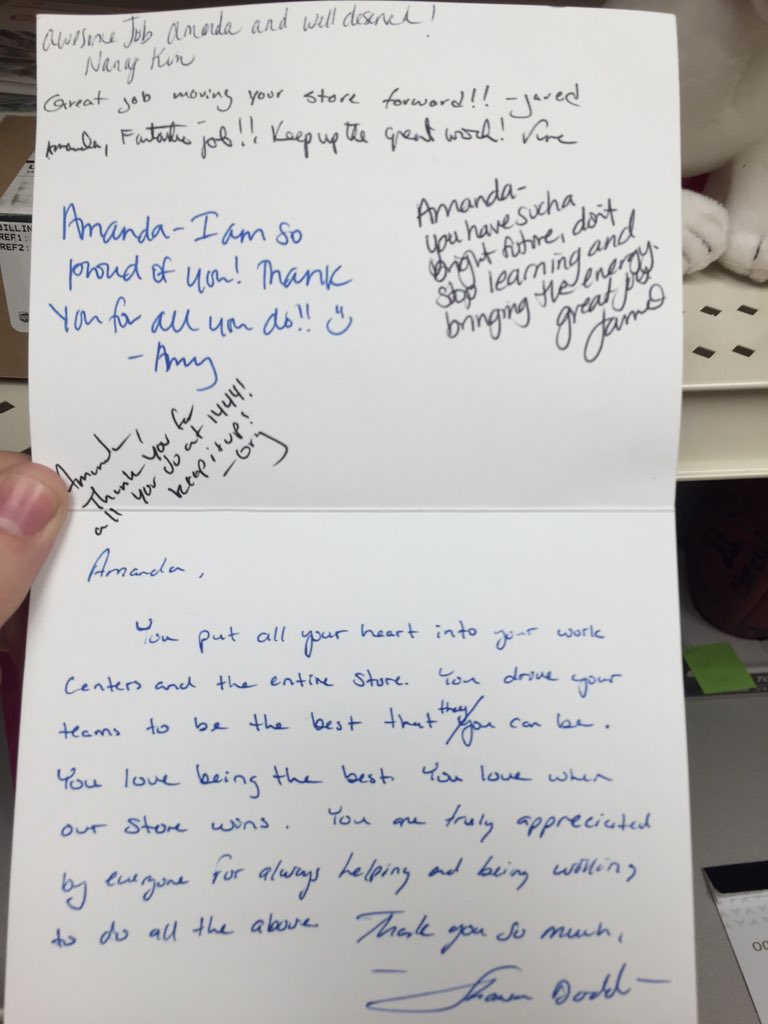 Awesome Job Amanda and well deserved!
Nancy Kim
Great job moving your store forward!! -Jared
Amanda, Fantastic job!! Keep up the great work! Vine
Amanda-
you have such a
bright future, don't
stop learning and
bringing the energy.
great job
Jamie
Amanda - I am so
proud of you! Thank
You for all you do!! ☺
- Amy
Amanda,
Thank you for
all you do at 1444!
keep it up!
Amanda,
You put all your heart into your work
centers and the entire store. You drive your
teams to be the best that they you can be.
You love being the best. You love when
our store wins. You are truly appreciated
by everyone for always helping and being willing
to do all the above. Thank you so much,
- Shawn Dodd -
BILLIN
REF1:
REF2: